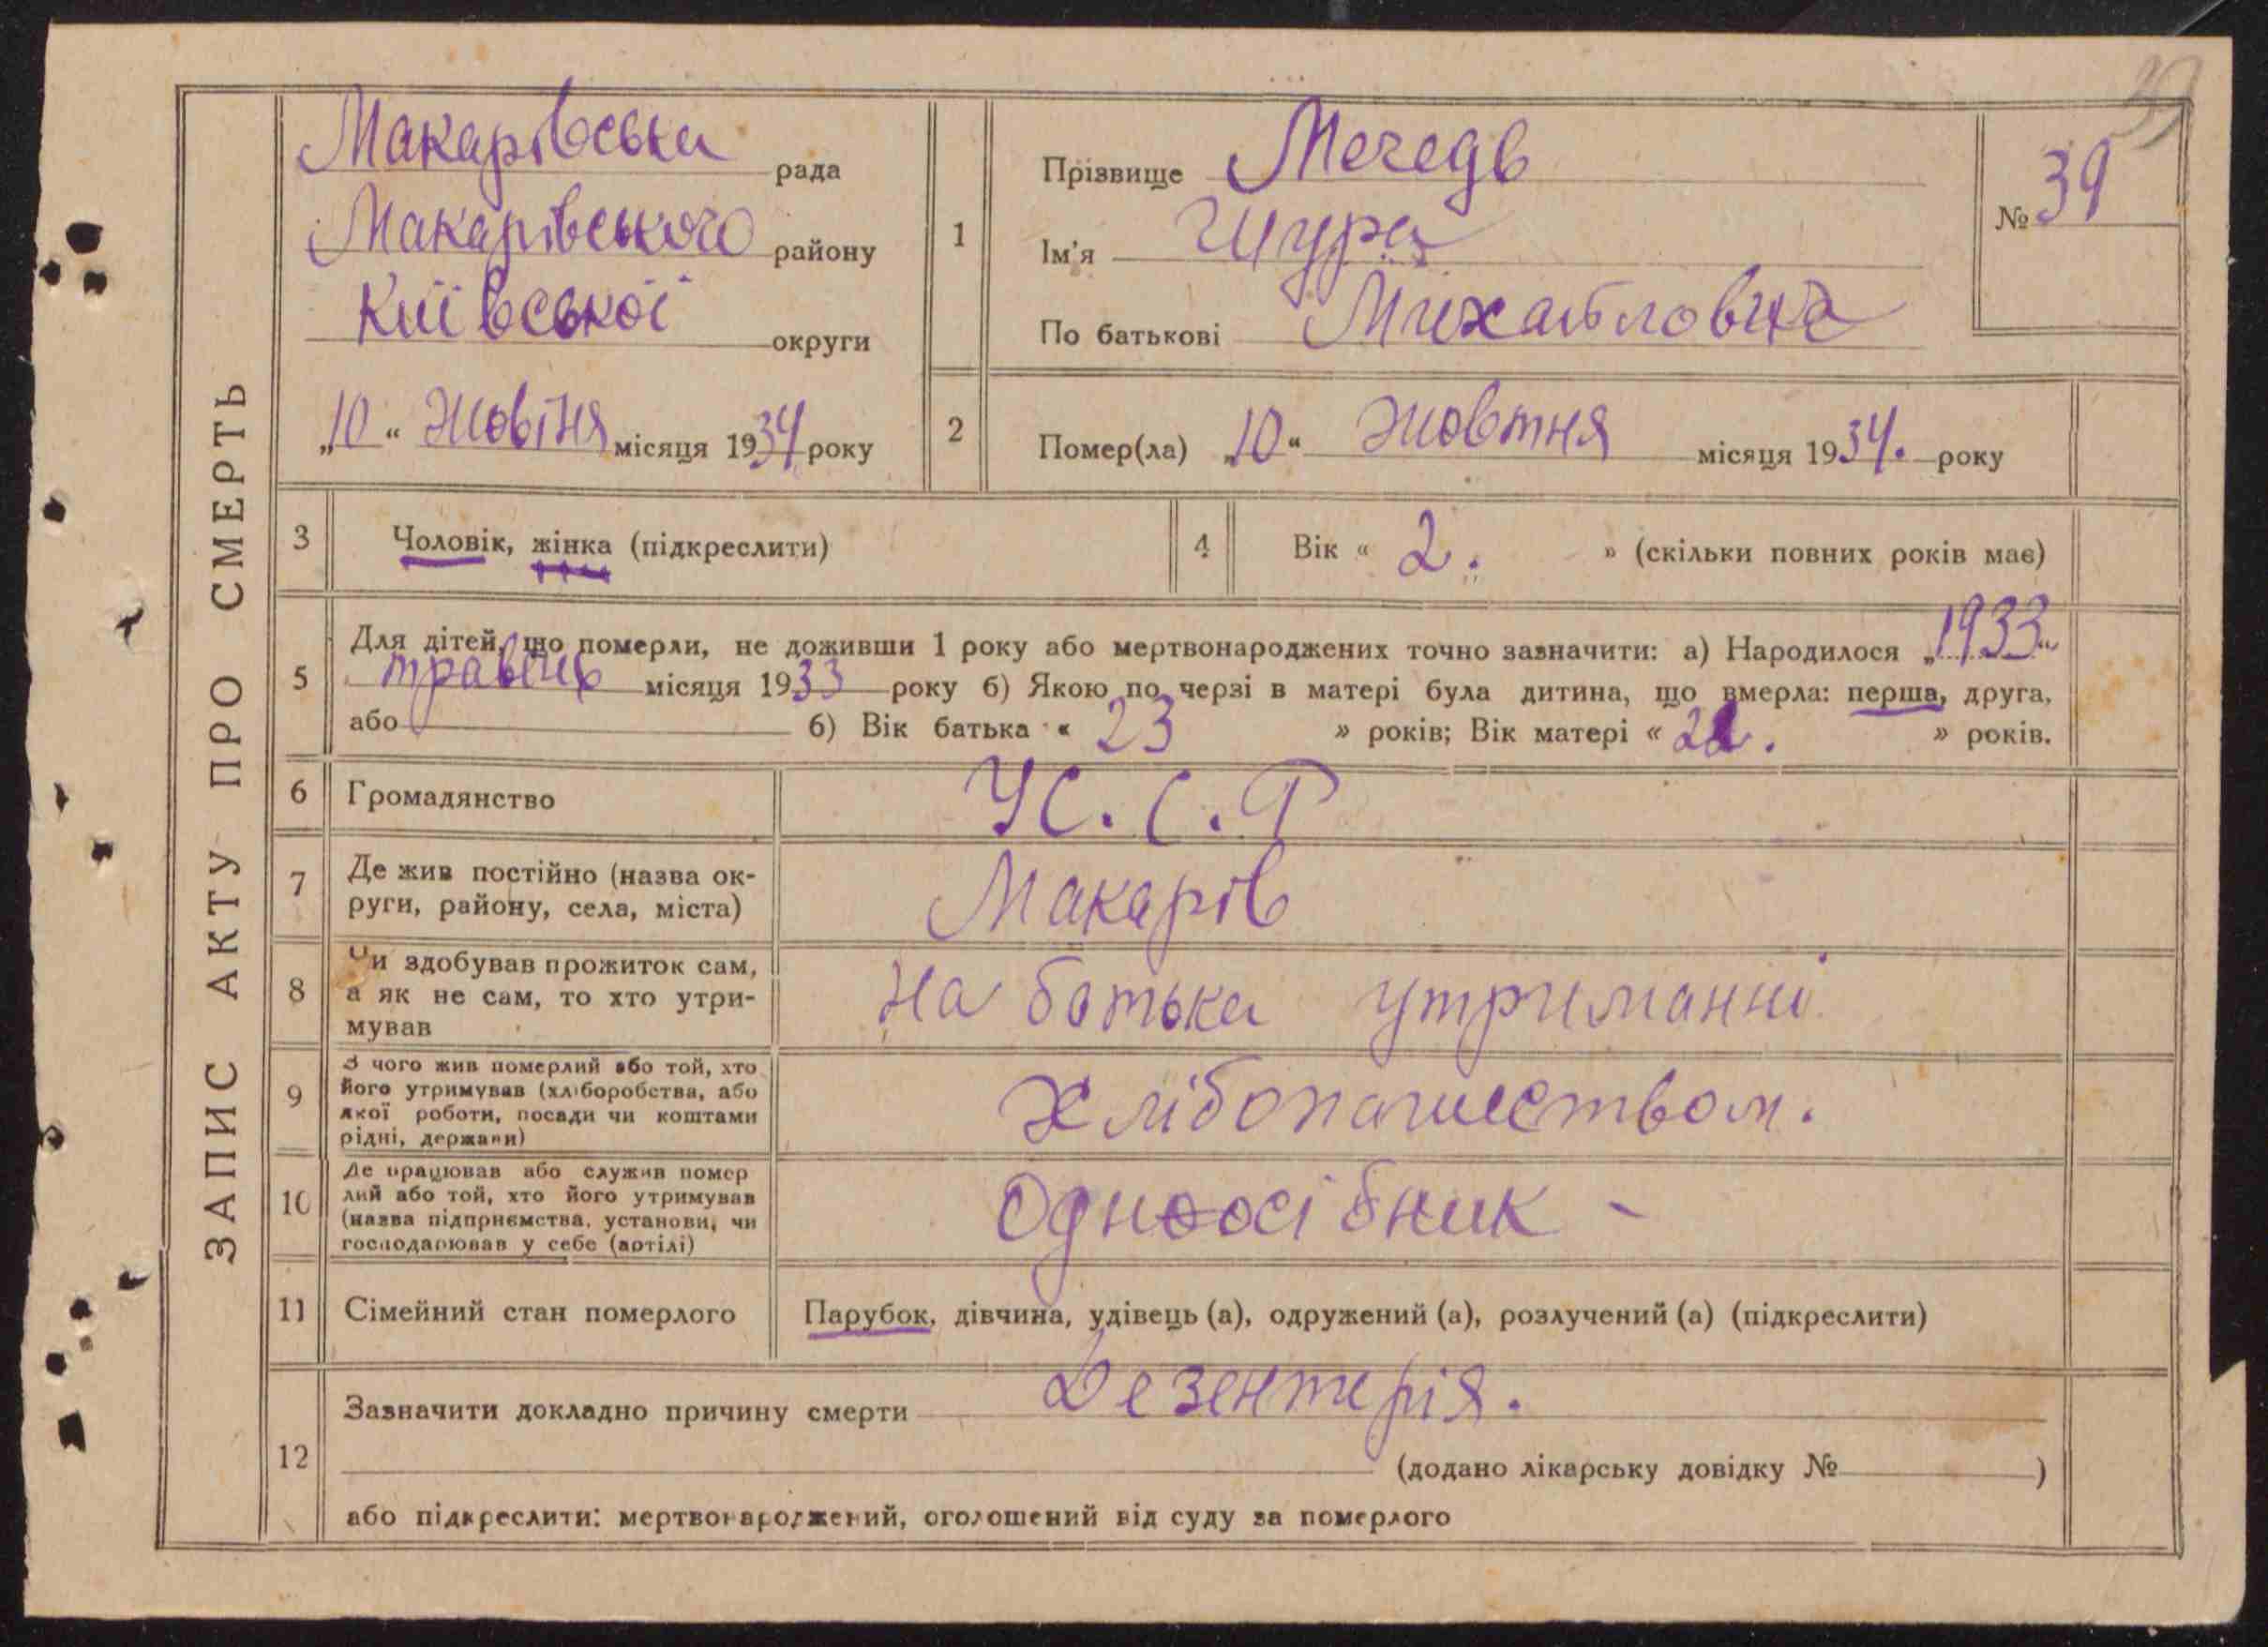 39
ЗАПИС АКТУ ПРО СМЕРТЬ
Макарівська рада
Макарівського району
Київської округи
„10“ Жовтня місяця 1934 року
1
Прізвище Мечедь
Ім'я Шура
По батькові Михайловна
№ 39
2
Помер(ла) „10“ жовтня місяця 1934. року
3
Чоловік, жінка (підкреслити)
4
Вік « 2. » (скільки повних років має)
5
Для дітей, що померли, не доживши 1 року або мертвонароджених точно зазначити: а) Народилося „1933“
травень місяця 1933 року б) Якою по черзі в матері була дитина, що вмерла: перша, друга,
або б) Вік батька « 23 » років; Вік матері « 22. » років.
6
Громадянство
УС.С.Р
7
Де жив постійно (назва ок-
руги, району, села, міста)
Макарів
8
Чи здобував прожиток сам,
а як не сам, то хто утри-
мував
на батька утриманні
9
З чого жив померлий або той, хто
його утримував (хліборобства, або
якої роботи, посади чи коштами
рідні, держави)
Хлібопашеством.
10
Де працював або служив помер
лий або той, хто його утримував
(назва підприємства, установи, чи
господарював у себе (артілі)
Одноосібник -
11
Сімейний стан померлого
Парубок, дівчина, удівець (а), одружений (а), розлучений (а) (підкреслити)
12
Зазначити докладно причину смерти Дезентерія.
(додано лікарську довідку № )
або підкреслити: мертвонароджений, оголошений від суду за померлого